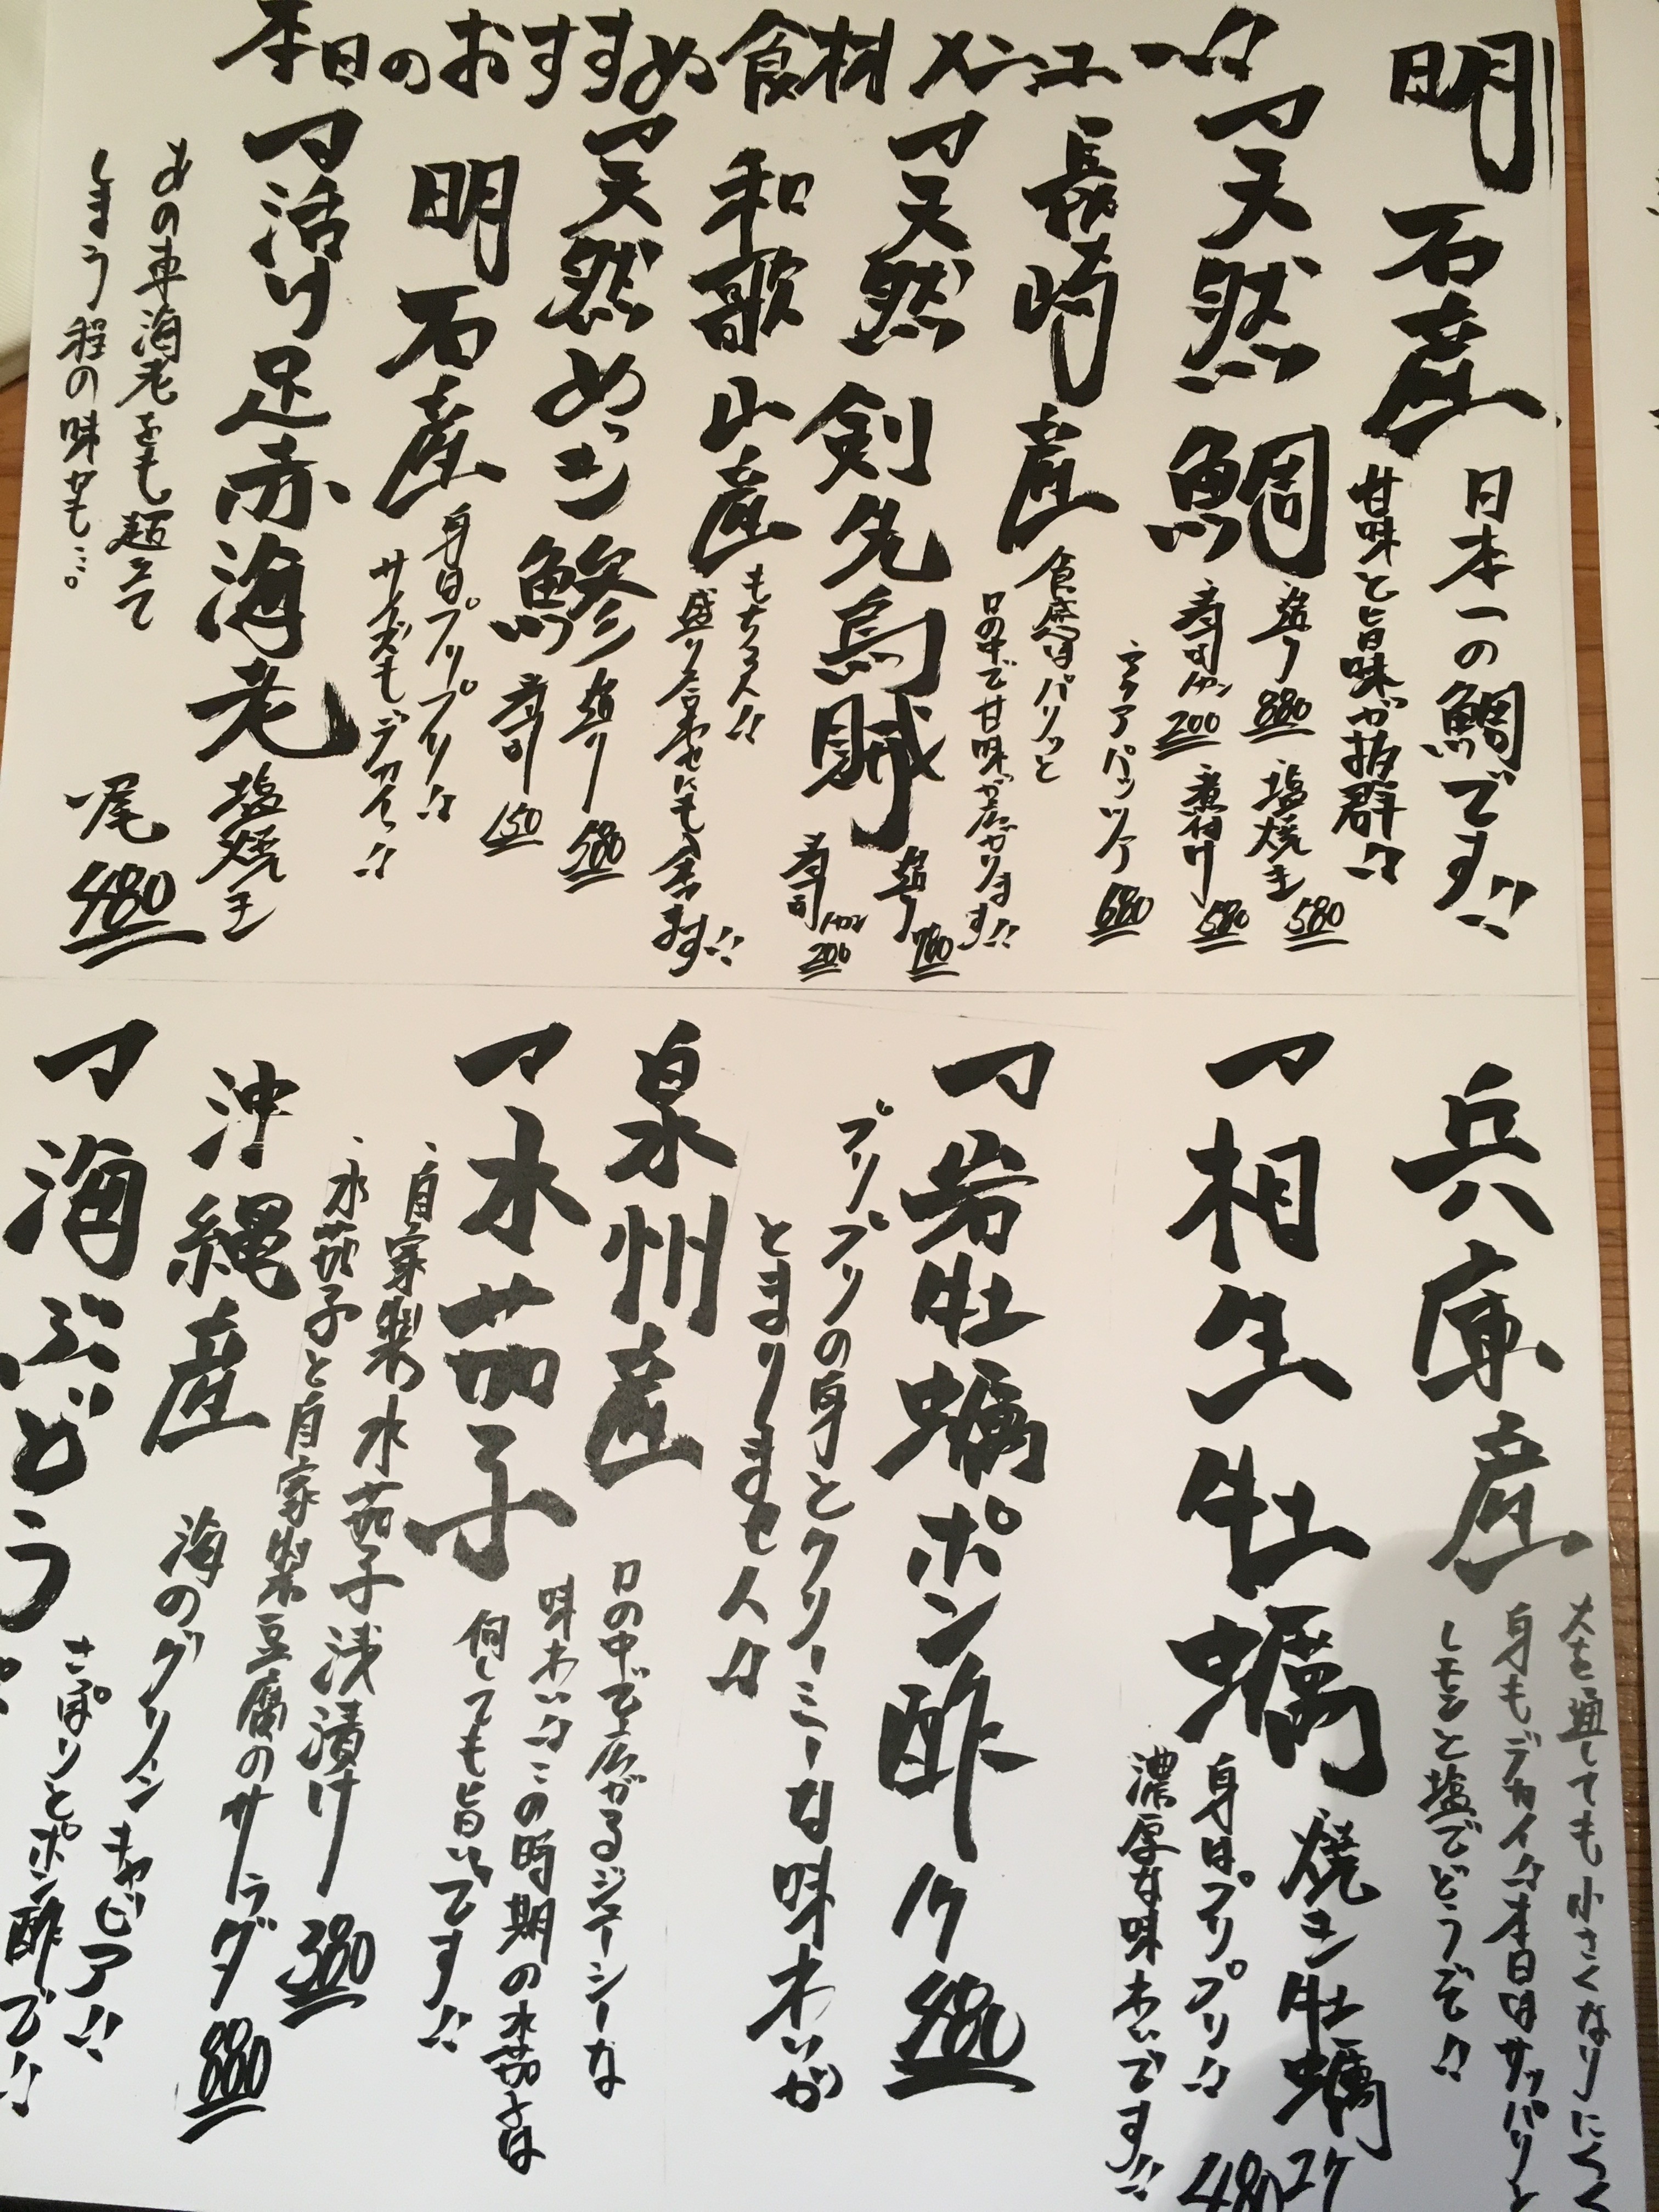 本日のおすすめ食材メニュー!!
明石産
日本一の鯛です!!
甘味と旨味が抜群!!
天然鯛
造り 880 塩焼き 580
寿司 200 煮付け 580
アクアパッツァ 680
長崎産
食感はパリッと
口の中で甘味が広がります!!
天然剣先烏賊
造り 780
寿司 200
和歌山産
もちろん!!
盛り合わせにも合います!!
天然めっき鯵
造り 580
寿司 150
明石産
身はプリプリ!!
サイズもデカイ!!
活け足赤海老
塩焼き
一尾 480
あの車海老をも超えて
しまう程の味かも…。
兵庫産
火を通しても小さくなりにくく
身もデカイ!!本日はサッパリと
レモンと塩でどうぞ!!
相生牡蠣
焼き牡蠣 2ケ 480
身はプリプリ!!
濃厚な味わいです!!
岩牡蠣ポン酢 1ケ
プリプリの身とクリーミーな味わいが
とまりません!!
泉州産
口の中で広がるジューシーな
味わい!!この時期の水茄子は
何しても旨いです!!
水茄子
、自家製水茄子浅漬け 380
、水茄子と自家製豆腐のサラダ 880
沖縄産
海のグリーンキャビア!!
さっぱりとポン酢で!!
海ぶどう